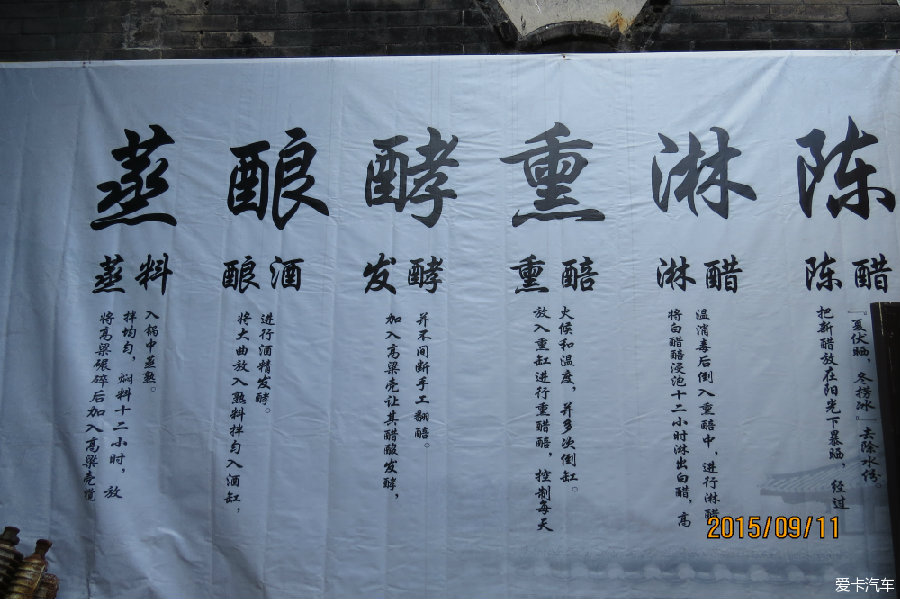 蒸
蒸料
将高粱碾碎后加入高粱壳搅
拌均匀，焖料十二小时，放
入锅中蒸熟。
酿
酿酒
将大曲放入熟料拌匀入酒缸，
进行酒精发酵。
酵
发酵
加入高粱壳让其醋酸发酵，
并不间断手工翻醅。
熏
熏醅
放入熏缸进行熏醋醅，控制每天
火候和温度，并多次倒缸。
淋
淋醋
将白醋醅浸泡十二小时淋出白醋，高
温消毒后倒入熏醅中，进行淋醋
陈
陈醋
把新醋放在阳光下暴晒，经过
“夏伏晒，冬捞冰”去除水份。
2015/09/11
爱卡汽车